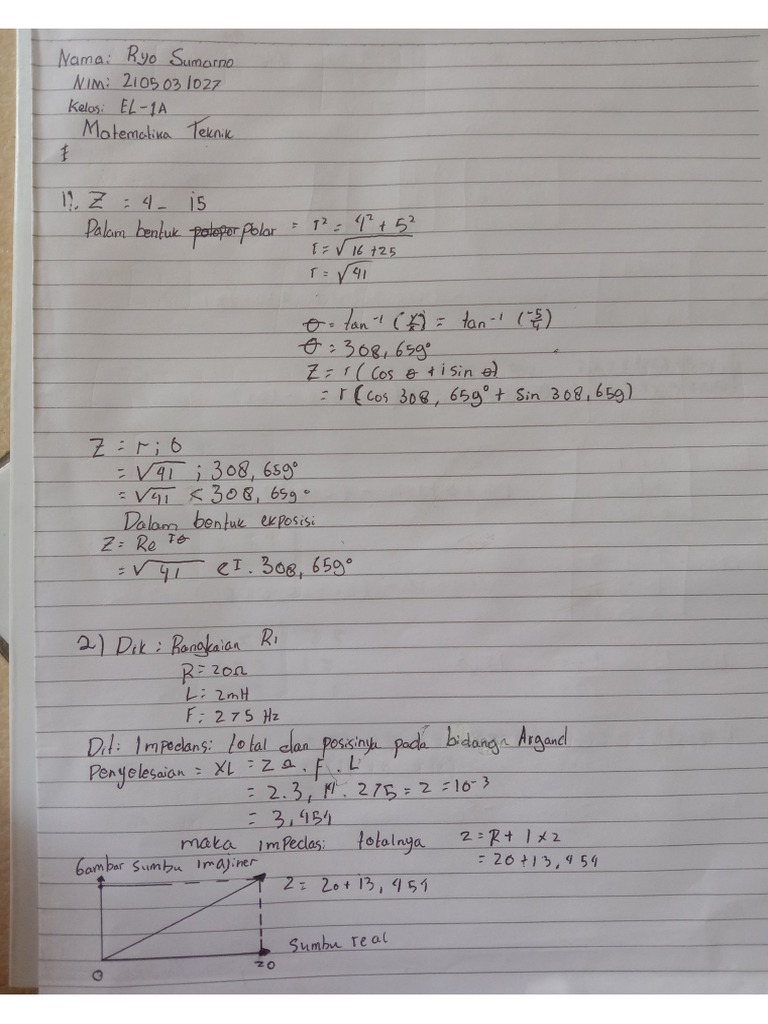 Nama: Ryo Sumarno
NIM: 2105031027
Kelas: EL-1A
Matematika Teknik
1). Z = 4 - i5
Dalam bentuk polar = r² = 4² + 5²
r = √16+25
r = √41
θ = tan⁻¹ (y/x) = tan⁻¹ (-5/4)
θ = 308,659°
Z = r (cos θ + i sin θ)
= r (cos 308, 659° + Sin 308,659)
Z = r ; θ
= √41 ; 308, 659°
= √41 < 308, 659°
Dalam bentuk exposisi
Z = Re Iθ
= √41 e I. 308, 659°
2) Dik : Rangkaian R1
R = 20Ω
L : 2mH
F : 275 Hz
Dit: Impedansi total dan posisinya pada bidang Argand
Penyelesaian = XL = 2 Ω . F . L
= 2.3, 14. 275 = 2 = 10⁻³
= 3,454
maka impedasi totalnya Z = R + 1 x 2
= 20 + i3, 454
Gambar Sumbu imajiner
Z = 20 + i3, 454
Sumbu real
0
20